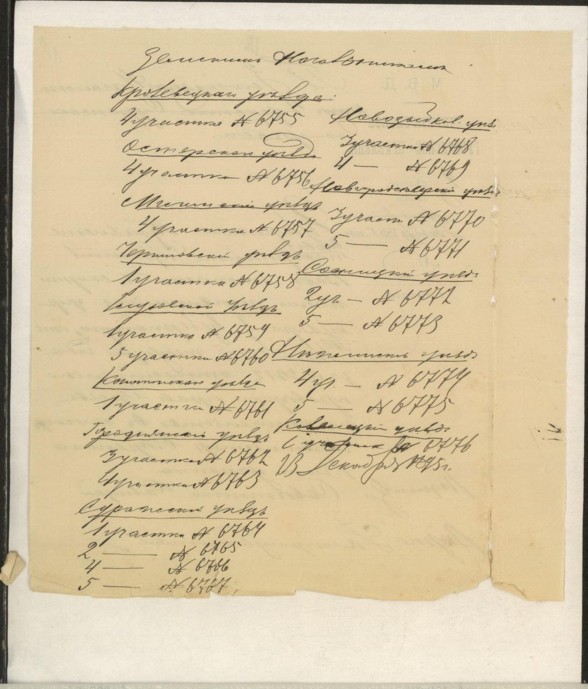 Земскимъ Начальникамъ
Кролевецкаго уѣзда:
4 участка № 6755
Остерскаго уѣзда
4 участка № 6756
Мглинскій уѣздъ
4 участка № 6757
Черниговскій уѣздъ
1 участка № 6758
Глуховской уѣздъ
участка № 6759
5 участка № 6760
уѣзда
1 участка № 6761
Городнянскій уѣздъ
3 участка № 6762
4 участка № 6763
Суражскій уѣздъ
1 участка № 6764
2 — № 6765
4 — № 6766
5 — № 6767
Новозыбков. уѣз.
3 участка № 6768
4 — № 6769
Новгородсѣверскій уѣздъ
3 участ. № 6770
5 — № 6771
Сосницкій уѣздъ
2 уч — № 6772
5 — № 6773
Нѣжинскій уѣздъ
4 уч. — № 6774
5 — № 6775
уѣздъ
участка № 6776
Декабря